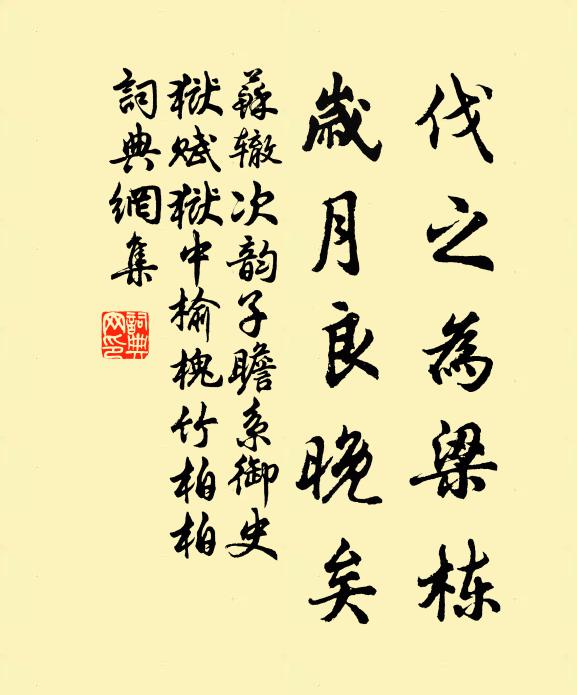 伐之為梁栋
歲月良晚矣
蘇辙次韵子瞻系御史
獄赋獄中榆槐竹柏柏
詞典網集
詞典網印